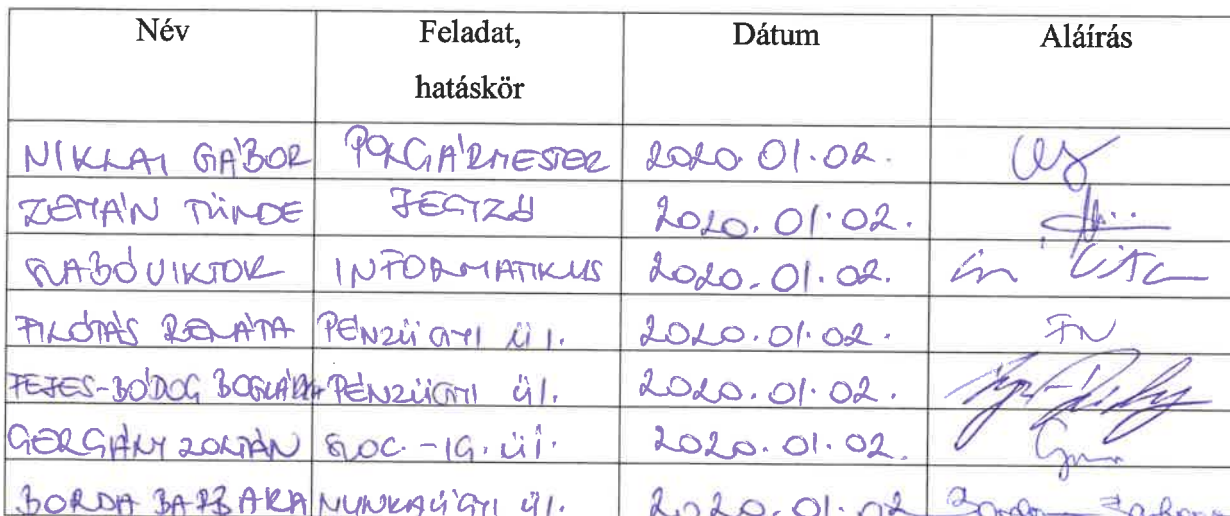 Név Feladat, Dátum Aláírás
hatáskör
NIKLAI GÁBOR POLGÁRMESTER 2020.01.02.
ZEMÁN TÜNDE JEGYZŐ 2020.01.02.
SZABÓ VIKTOR INFORMATIKUS 2020.01.02.
FILÓTÁS RENÁTA PÉNZÜGYI ÜI. 2020.01.02. FN
FEJES-BÓDOG BOGLÁRKA PÉNZÜGYI ÜI. 2020.01.02.
GERGHÁNY ZOLTÁN SZOC.-IG. ÜI. 2020.01.02.
BORDA BARBARA MUNKAÜGYI ÜI. 2020.01.02 Borda Barbara